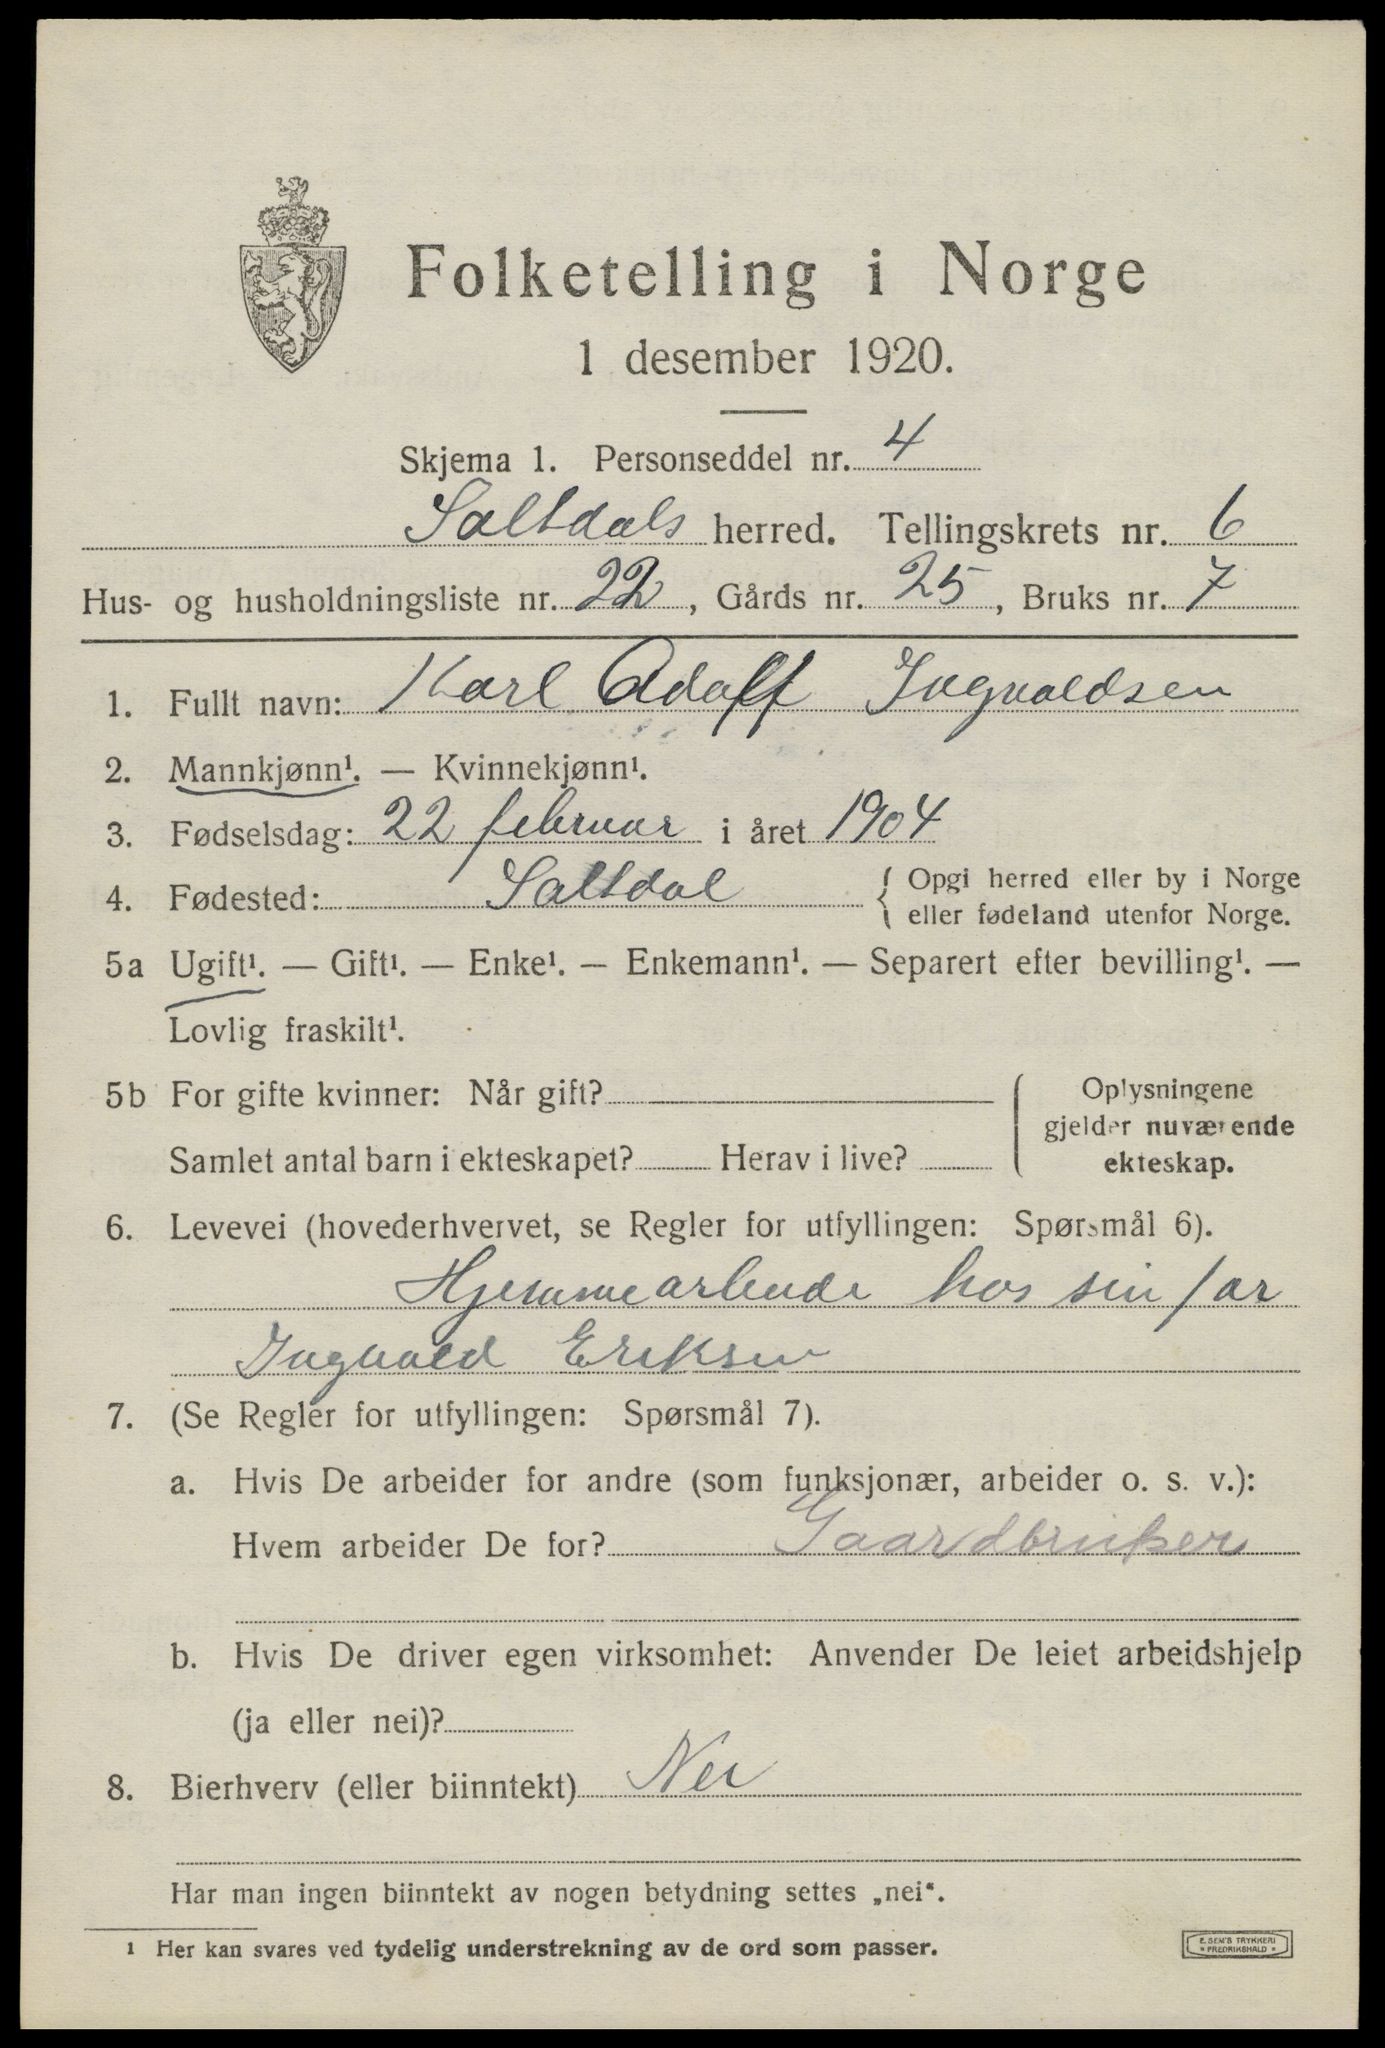 Folketelling i Norge
1 desember 1920.
Skjema 1. Personseddel nr. 4
Saltdals herred. Tellingskrets nr. 6
Hus- og husholdningsliste nr. 22, Gårds nr. 25, Bruks nr. 7
1. Fullt navn: Karl Adolf Ingvaldsen
2. Mannkjønn¹. — Kvinnekjønn¹.
3. Fødselsdag: 22 februar i året 1904
4. Fødested: Saltdal { Opgi herred eller by i Norge
eller fødeland utenfor Norge.
5a Ugift¹. — Gift¹. — Enke¹. — Enkemann¹. — Separert efter bevilling¹. —
Lovlig fraskilt¹.
5b For gifte kvinner: Når gift?
Samlet antal barn i ekteskapet? Herav i live?
Oplysningene
gjelder nuværende
ekteskap.
6. Levevei (hovederhvervet, se Regler for utfyllingen: Spørsmål 6).
Hjemmearbeide hos sin far
Ingvald Eriksen
7. (Se Regler for utfyllingen: Spørsmål 7).
a. Hvis De arbeider for andre (som funksjonær, arbeider o. s. v.):
Hvem arbeider De for? Gaardbruker
b. Hvis De driver egen virksomhet: Anvender De leiet arbeidshjelp
(ja eller nei)?
8. Bierhverv (eller biinntekt) Nei
Har man ingen biinntekt av nogen betydning settes „nei“.
¹ Her kan svares ved tydelig understrekning av de ord som passer.
E. SEM'S TRYKKERI
* FREDRIKSHALD *